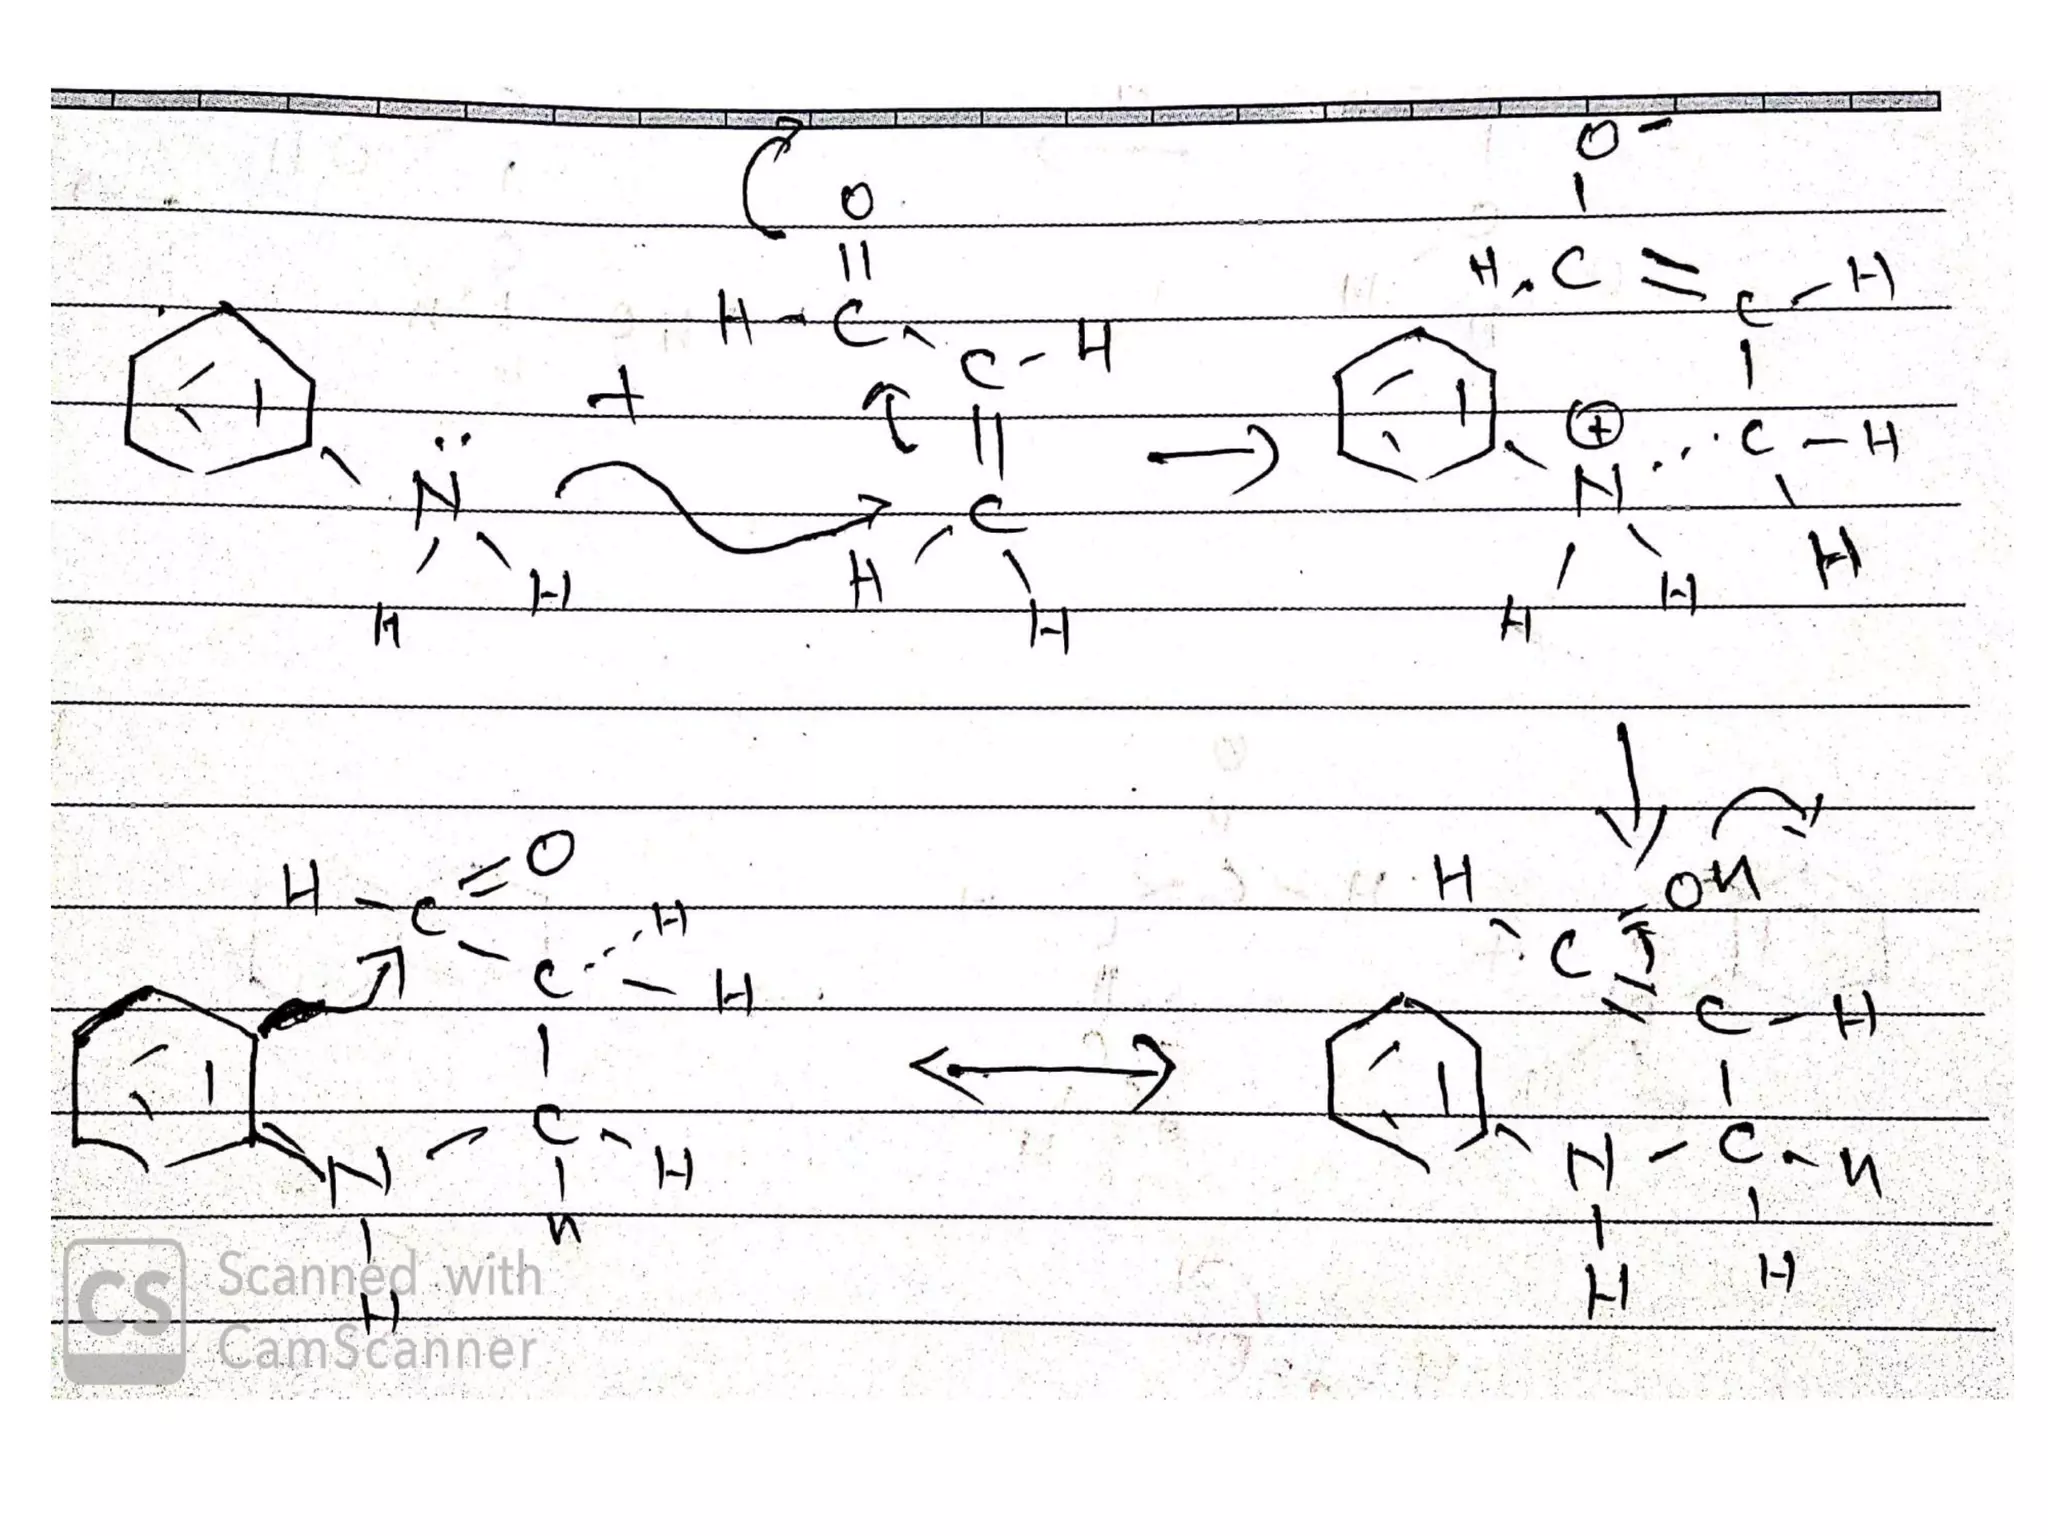 O
O –
H - C
H . C = C - H
C - H
+
⊕
N̈
C
N
C - H
H
H
H
H
H
H
H
H
OH
H - C = O
H
C
H
C
H
C - H
N
C
H
N - C - H
H
H
H
H
Scanned with
CamScanner